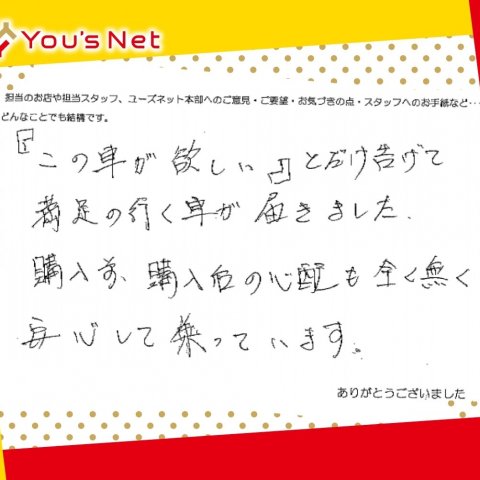 You's Net
担当のお店や担当スタッフ、ユーズネット本部へのご意見・ご要望・お気づきの点・スタッフへのお手紙など…
どんなことでも結構です。
『この車が欲しい』とだけ告げて
満足の行く車が届きました.
購入前、購入後の心配も全く無く
安心して乗っています。
ありがとうございました